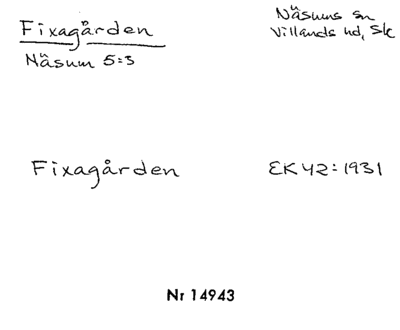 Fixagården
Näsum 5:3
Näsums sn
Villands hd, Sk
Fixagården
EK 42:1931
Nr 14943